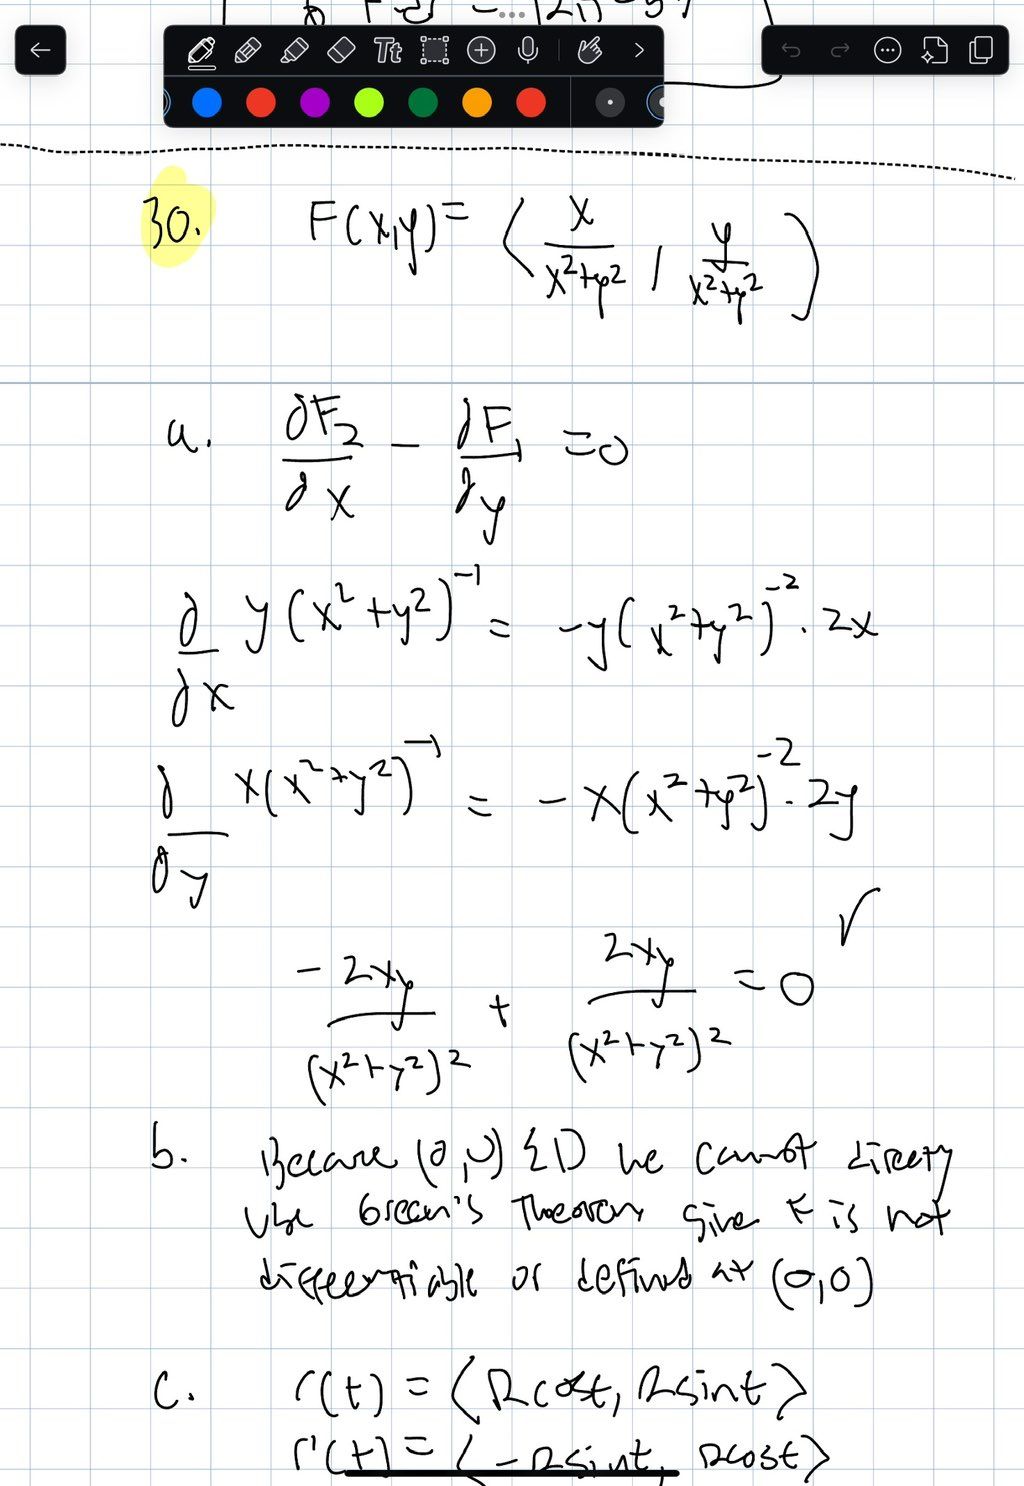 Tt
30. F(x,y) = ⟨ x/(x²+y²) , y/(x²+y²) ⟩
a. ∂F₂/∂x − ∂F₁/∂y = 0
∂/∂x y(x²+y²)⁻¹ = −y(x²+y²)⁻² · 2x
∂/∂y x(x²+y²)⁻¹ = −x(x²+y²)⁻² · 2y
−2xy/(x²+y²)² + 2xy/(x²+y²)² = 0 ✓
b. Because (0,0) ∈ D we cannot directly
use Green's Theorem given F is not
differentiable or defined at (0,0)
c. r(t) = ⟨Rcost, Rsint⟩
r'(t) = ⟨−Rsint, Rcost⟩